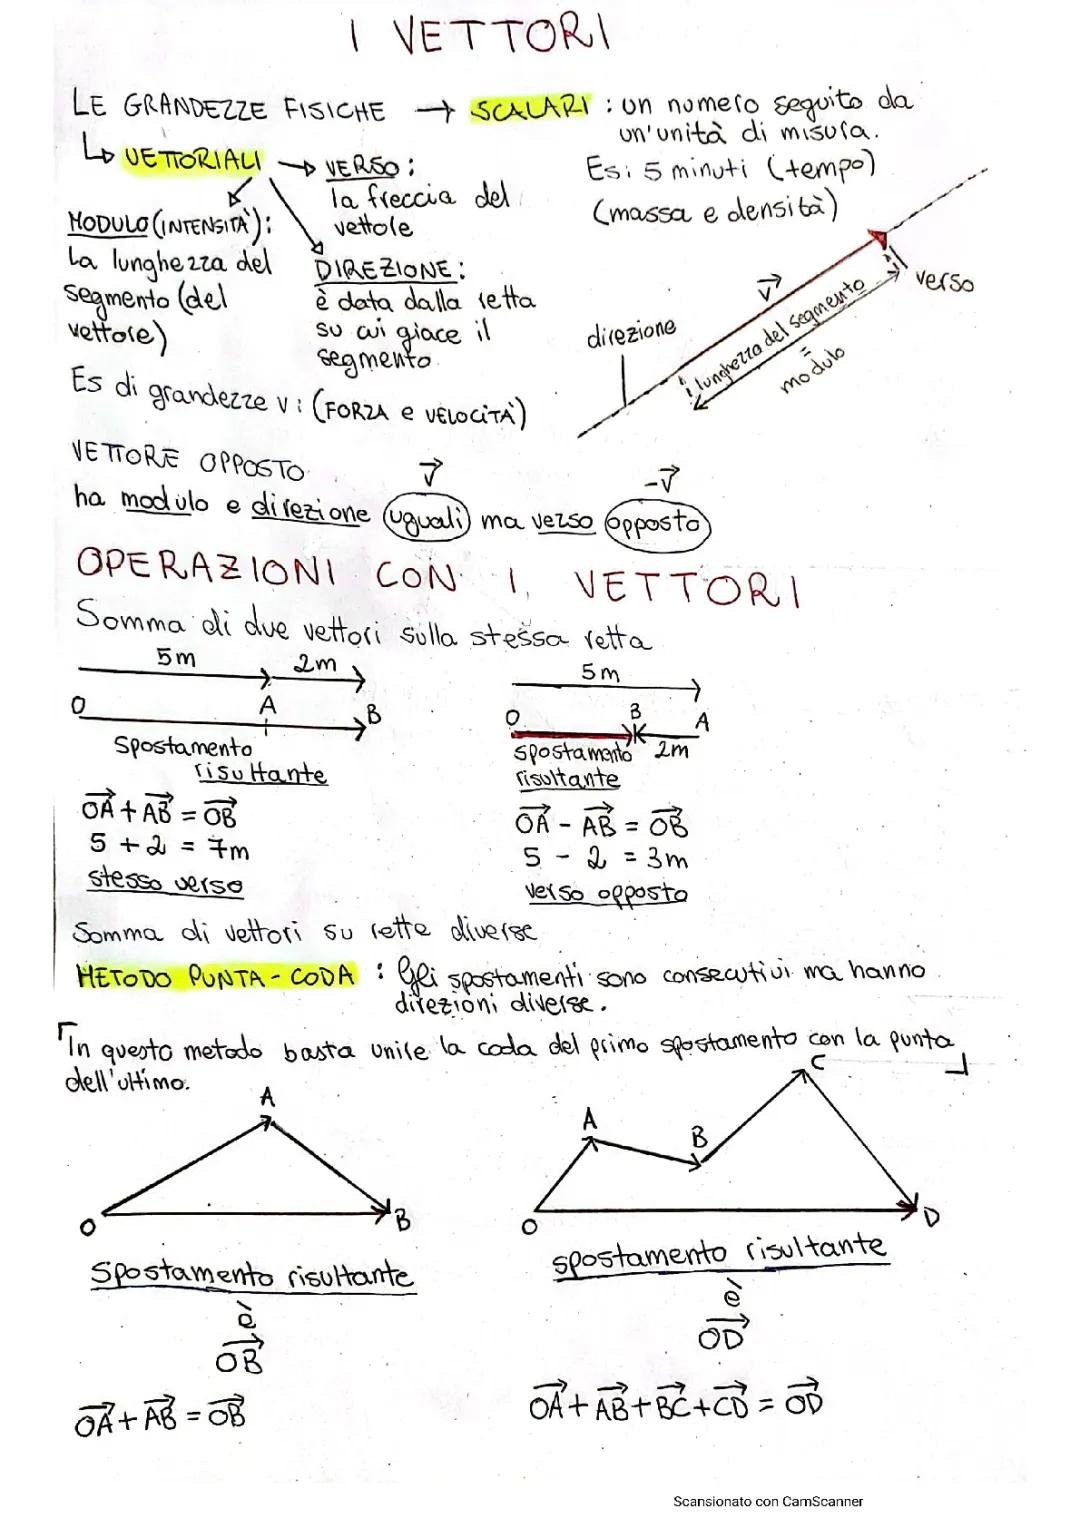 I VETTORI
LE GRANDEZZE FISICHE → SCALARI : un numero seguito da
un'unità di misura.
Es: 5 minuti (tempo)
(massa e densità)
↳ VETTORIALI → VERSO :
la freccia del
vettore
MODULO (INTENSITÀ) :
La lunghezza del
segmento (del
vettore)
DIREZIONE :
è data dalla retta
su cui giace il
segmento
direzione
v
verso
lunghezza del segmento
=
modulo
Es di grandezze v : (FORZA e VELOCITÀ)
VETTORE OPPOSTO
v⃗ -v⃗
ha modulo e direzione uguali ma verso opposto
OPERAZIONI CON I VETTORI
Somma di due vettori sulla stessa retta
5m 2m
O A B
Spostamento
risultante
OA + AB = OB
5 + 2 = 7m
stesso verso
5m
O B A
spostamento 2m
risultante
OA - AB = OB
5 - 2 = 3m
verso opposto
Somma di vettori su rette diverse
METODO PUNTA-CODA : Gli spostamenti sono consecutivi ma hanno
direzioni diverse.
In questo metodo basta unire la coda del primo spostamento con la punta
dell'ultimo.
A
O B
Spostamento risultante
è
OB
OA + AB = OB
A B C
O D
spostamento risultante
è
OD
OA + AB + BC + CD = OD
Scansionato con CamScanner